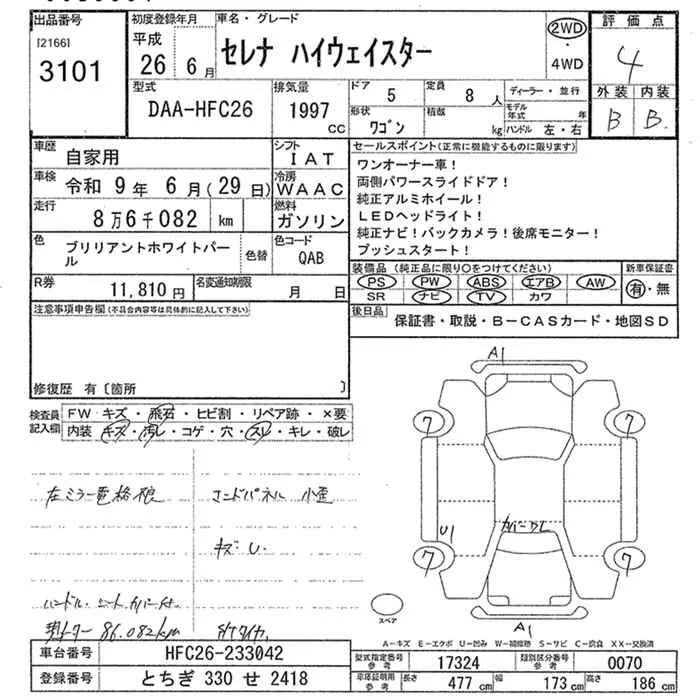 出品番号
[2166]
3101
初度登録年月
平成
26 年 6 月
車名・グレード
セレナ ハイウェイスター
2WD
・
4WD
評価点
4
外装 内装
B B
型式
DAA-HFC26
排気量
1997
CC
ドア 5
定員 8 人
ディーラー・並行
形状 ワゴン
積載 kg
モデル年式 年
ハンドル 左・右
車歴 自家用
シフト IAT
車検 令和 9年 6月(29日)
冷房 WAAC
走行 8万6千082 km
燃料 ガソリン
色 ブリリアントホワイトパール
色替
色コード QAB
R券 11,810 円
名変通知期限 月 日
セールスポイント(正常に機能するものに限ります)
ワンオーナー車!
両側パワースライドドア!
純正アルミホイール!
LEDヘッドライト!
純正ナビ!バックカメラ!後席モニター!
プッシュスタート!
装備品(純正品に限り○をつけてください)
PS PW ABS エアB AW
SR ナビ TV カワ
新車保証書
有・無
後日品 保証書・取説・B-CASカード・地図SD
注意事項申告欄(不具合内容等は具体的に記入して下さい)
修復歴 有〔箇所 〕
検査員記入欄
FW キズ・飛石・ヒビ割・リペア跡・×要
内装 キズ・汚レ・コゲ・穴・スレ・キレ・破レ
左ミラー電格
エンドパネル 小歪
キズ・U
ハンドル・シートカバー付
86.082km
A1
7
7
U1
カバースレ
7
7
A1
スペア
A-キズ E-エクボ U-凹み W-補修跡 S-サビ C-腐食 XX-交換済
車台番号 HFC26-233042
登録番号 とちぎ 330 せ 2418
型式指定番号 参考 17324
類別区分番号 参考 0070
車庫証明用 参考 長さ 477 cm 幅 173 cm 高さ 186 cm